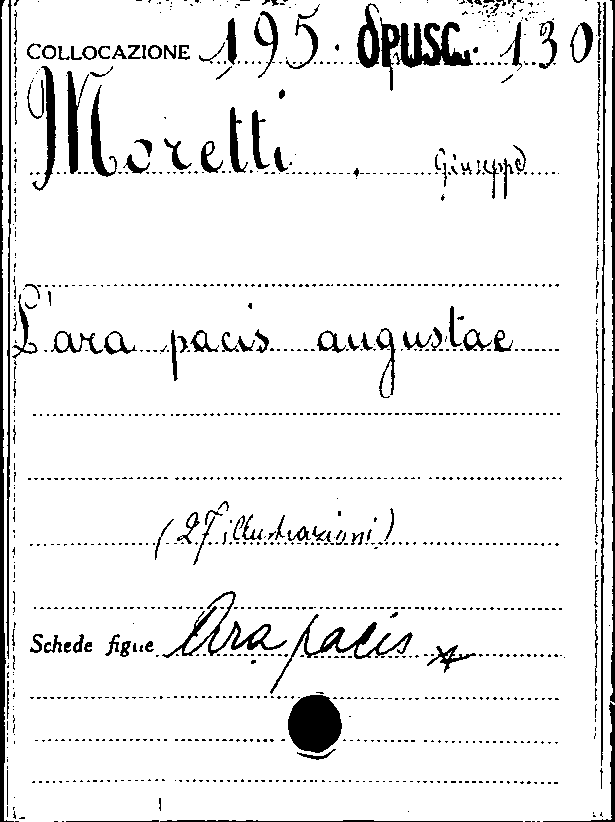 COLLOCAZIONE 195. OPUSC. 130
Moretti. Giuseppe
L'ara pacis augustae
(27 illustrazioni)
Schede figlie Ara pacis